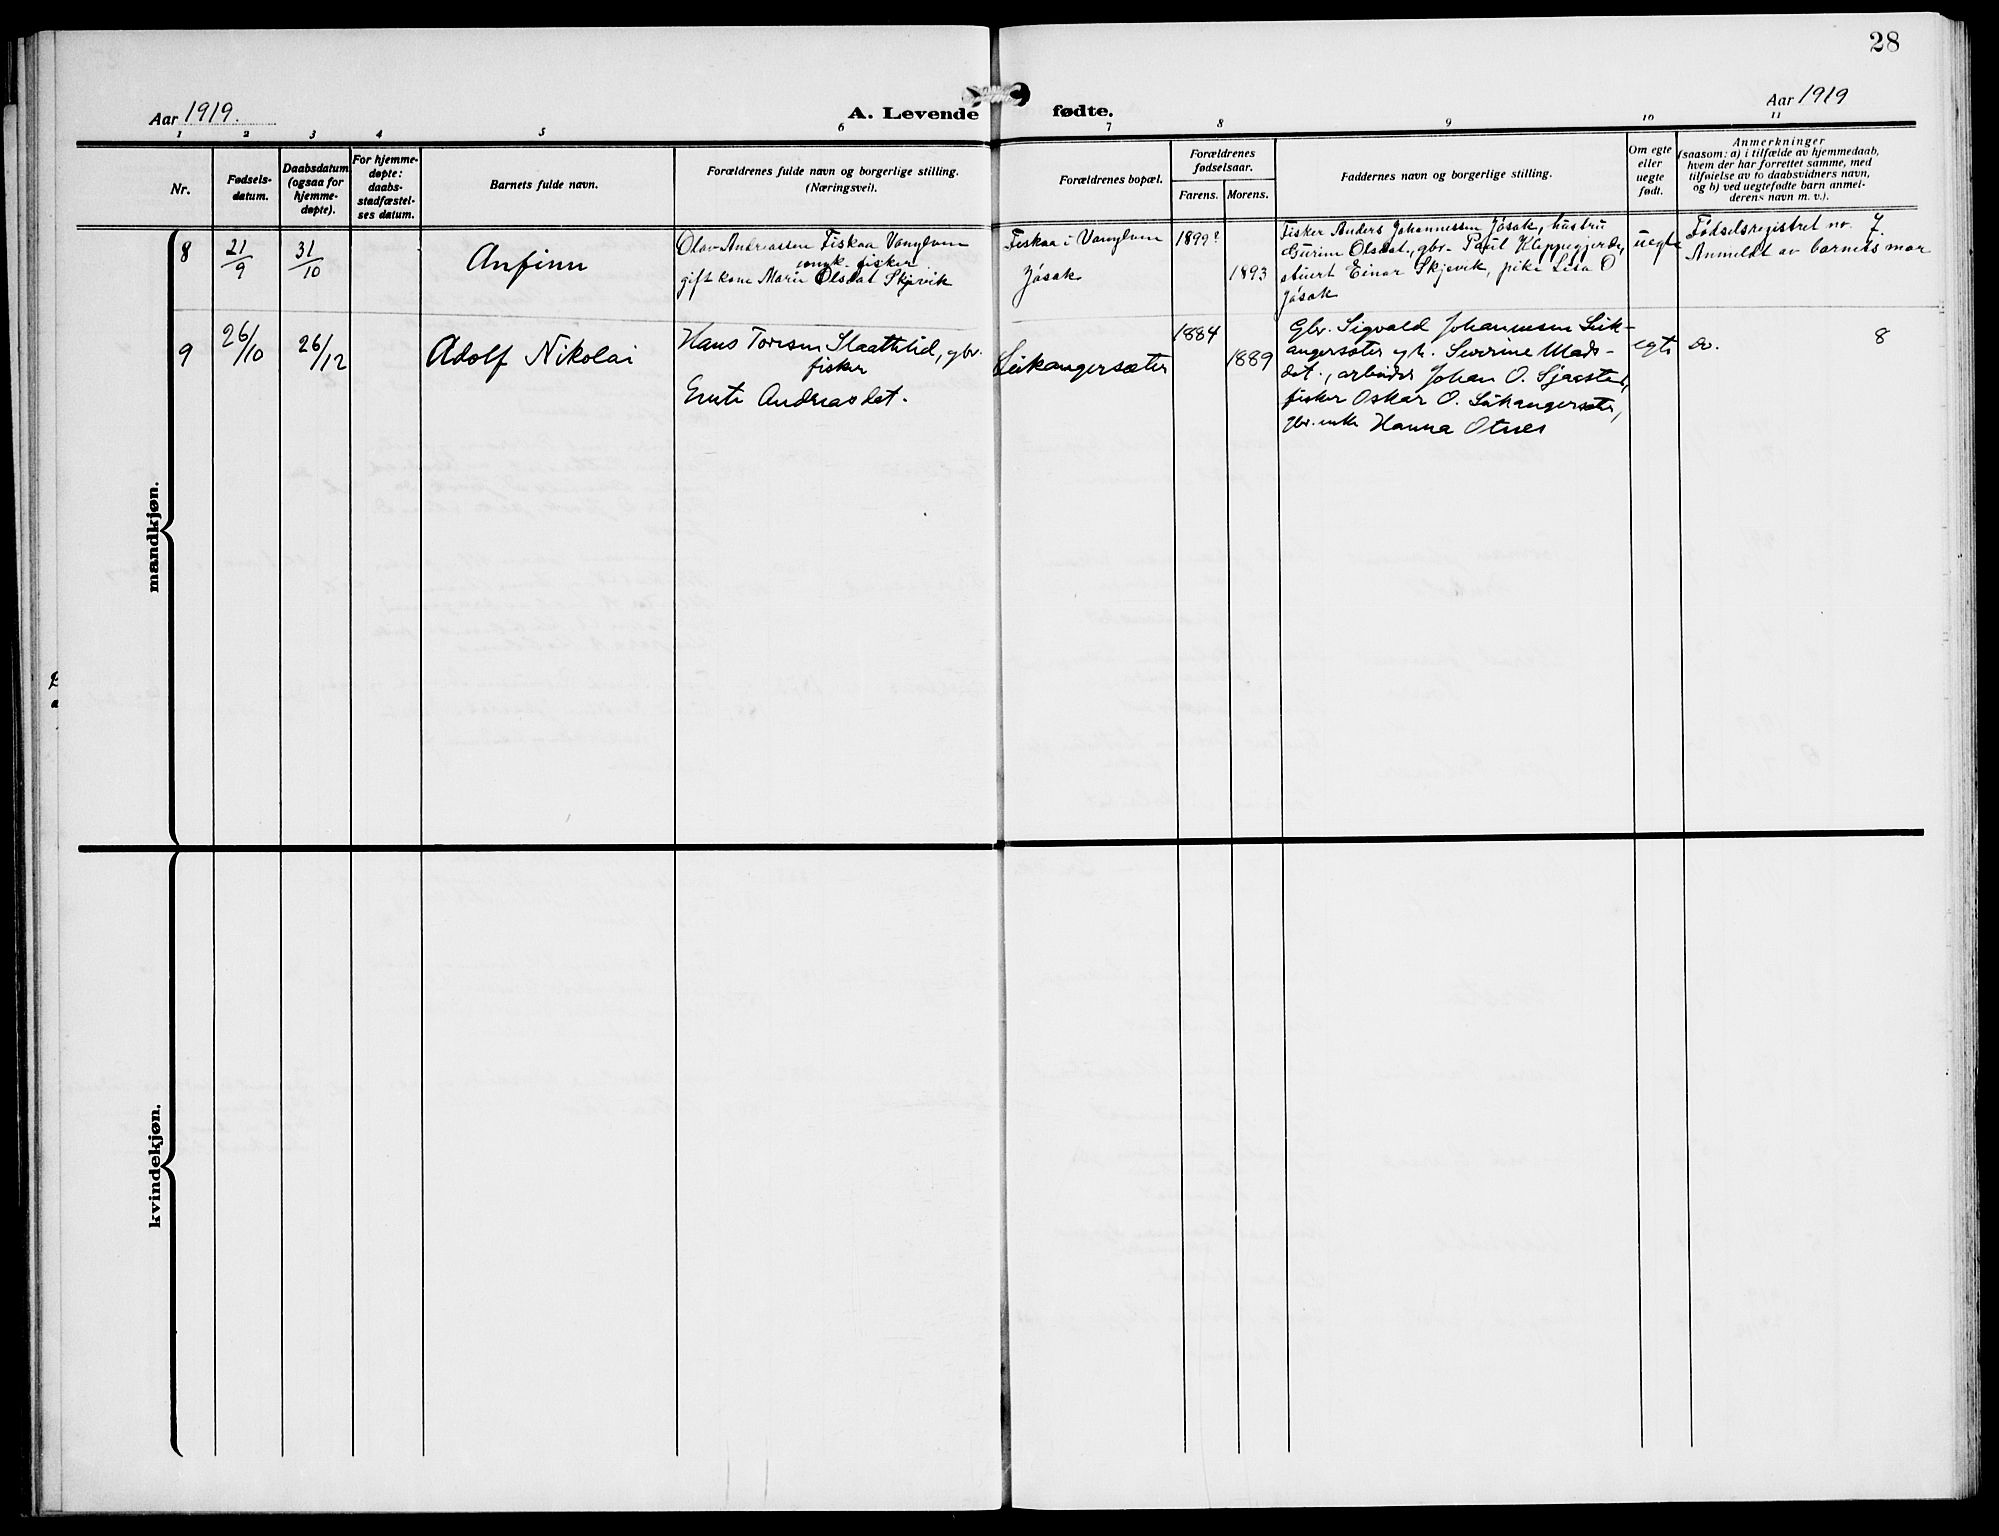 28
Aar 1919.
A. Levende fødte.
Aar 1919
1 2 3 4 5 6 7 8 9 10 11
Nr.
Fødsels-
datum.
Daabsdatum
(ogsaa for
hjemme-
døpte).
For hjemme-
døpte:
daabs-
stadfæstel-
ses datum.
Barnets fulde navn.
Forældrenes fulde navn og borgerlige stilling.
(Næringsvei).
Forældrenes bopæl.
Forældrenes
fødselsaar.
Farens. Morens.
Faddernes navn og borgerlige stilling.
Om egte
eller
uegte
født.
Anmerkninger
(saasom: a) i tilfælde av hjemmedaab,
hvem der har forrettet samme, med
tilføielse av to daabsvidners navn,
og b) ved uegtefødte barn anmel-
derens navn m. v.).
mandkjøn.
8
21/9
31/10
Anfinn
Olav Andreassen Fiskaa Vanylven
ungk. fisker
gift kone Marie Olsdat Skjevik
Fiskaa i Vanylven
Jøsak
1899?
1893
Fisker Anders Johannessen Jøsak, hustru
Gurine Olsdat, gbr. Paul Kleppegjerde,
stuert Einar Skjevik, pike Lisa O
Jøsak
uegte
Fødselsregistret nr. 7.
Anmeldt av barnets mor
9
26/10
26/12
Adolf Nikolai
Hans Toresen Slaattelid, gbr.
fisker
Ente Andreasdat.
Leikangersæter
1884
1889
Gbr. Sigvald Johannesen Leik-
angersæter og h. Severine Mads-
dat., arbeider Johan O. Sjaastad,
fisker Oskar O. Leikangersæter,
gbr.enke Hanna Otnes
egte
do. 8
kvindekjøn.